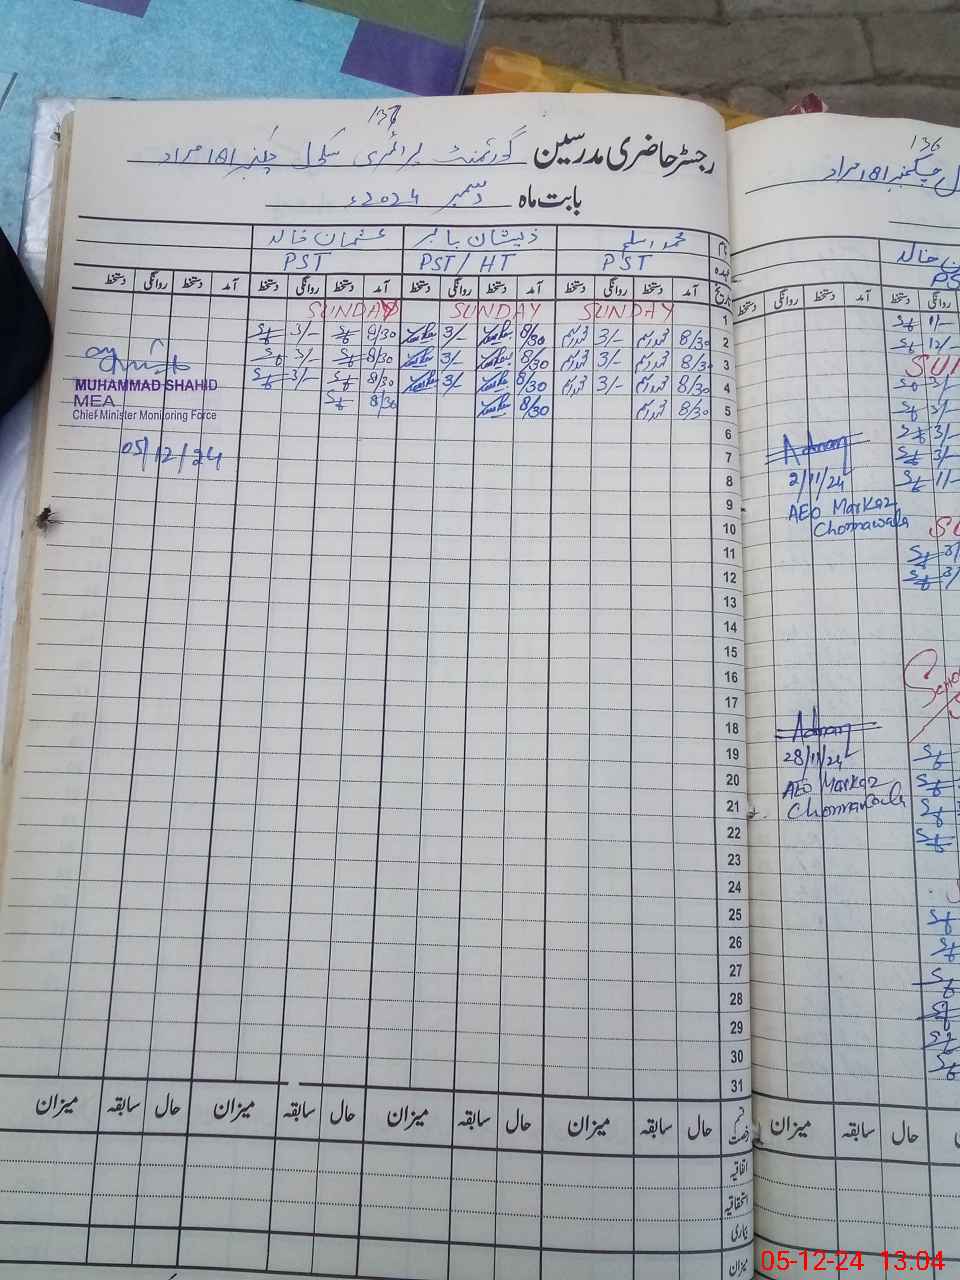 137
رجسٹر حاضری مدرسین گورنمنٹ پرائمری سکول چکنمبر 181 مراد
بابت ماہ دسمبر 2024ء
نام محمد اسلم ذیشان بابر عثمان خالد
عہدہ PST PST/HT PST
تاریخ آمد دستخط روانگی دستخط آمد دستخط روانگی دستخط آمد دستخط روانگی دستخط آمد دستخط روانگی دستخط
1 SUNDAY SUNDAY SUNDAY
2 8/30 3/- 8/30 3/- 8/30 3/-
3 8/30 3/- 8/30 3/- 8/30 3/-
4 8/30 3/- 8/30 3/- 8/30 3/-
5 8/30 8/30 8/30
MUHAMMAD SHAHID
MEA
Chief Minister Monitoring Force
05/12/24
6
7
8
9
10
11
12
13
14
15
16
17
18
19
20
21
22
23
24
25
26
27
28
29
30
31
قسم رخصت حال سابقہ میزان حال سابقہ میزان حال سابقہ میزان حال سابقہ میزان
اتفاقیہ
استحقاقیہ
بیماری
میزان
136
چکنمبر 181 مراد
خالد
PS
آمد دستخط روانگی دستخط
روانگی دستخط
1/-
12/-
SUN
3/-
3/-
3/-
3/-
1/-
Adnan
2/11/24
AEO Markaz
Chonnawala
SU
3/
3/
Adnan
28/11/24
AEO Markaz
Chonnawala
حال سابقہ میزان
05-12-24 13.04